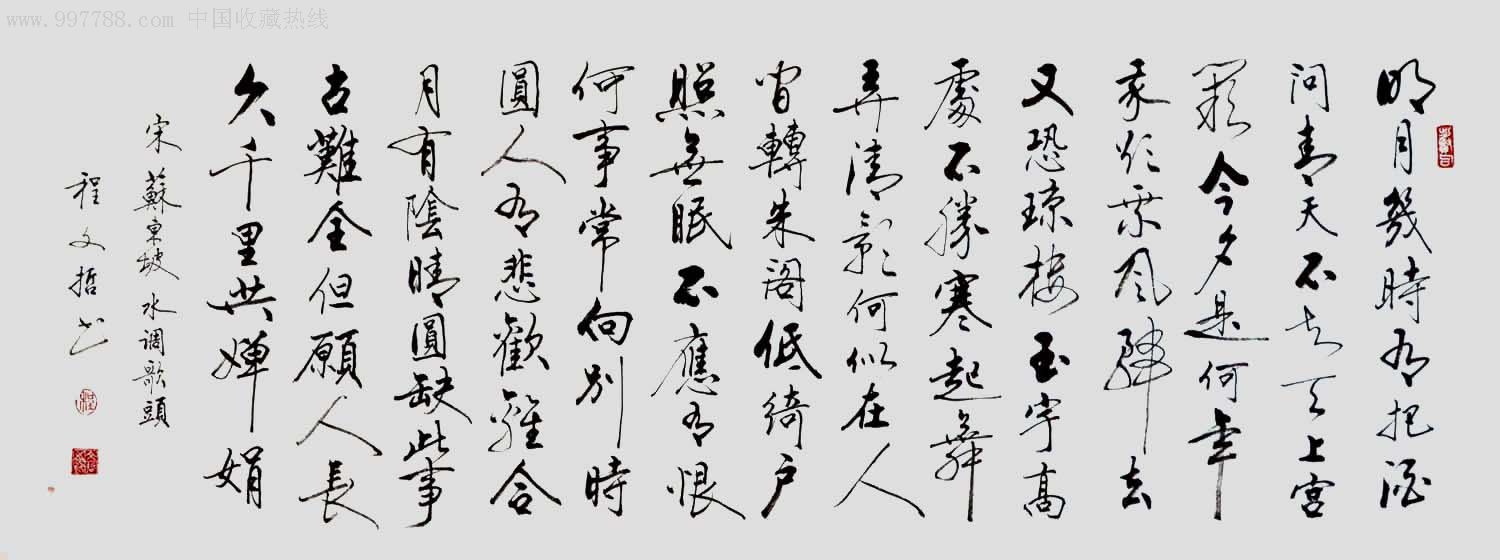 www.997788.com 中国收藏热线
明月幾時有把酒
问青天不知天上宮
闕今夕是何年
我欲乘风歸去
又恐琼楼玉宇高
處不勝寒起舞
弄清影何似在人
间轉朱阁低绮户
照無眠不應有恨
何事常向别時
圓人有悲歡離合
月有陰晴圓缺此事
古難全但願人長
久千里共嬋娟
宋蘇東坡水调歌頭
程文哲书